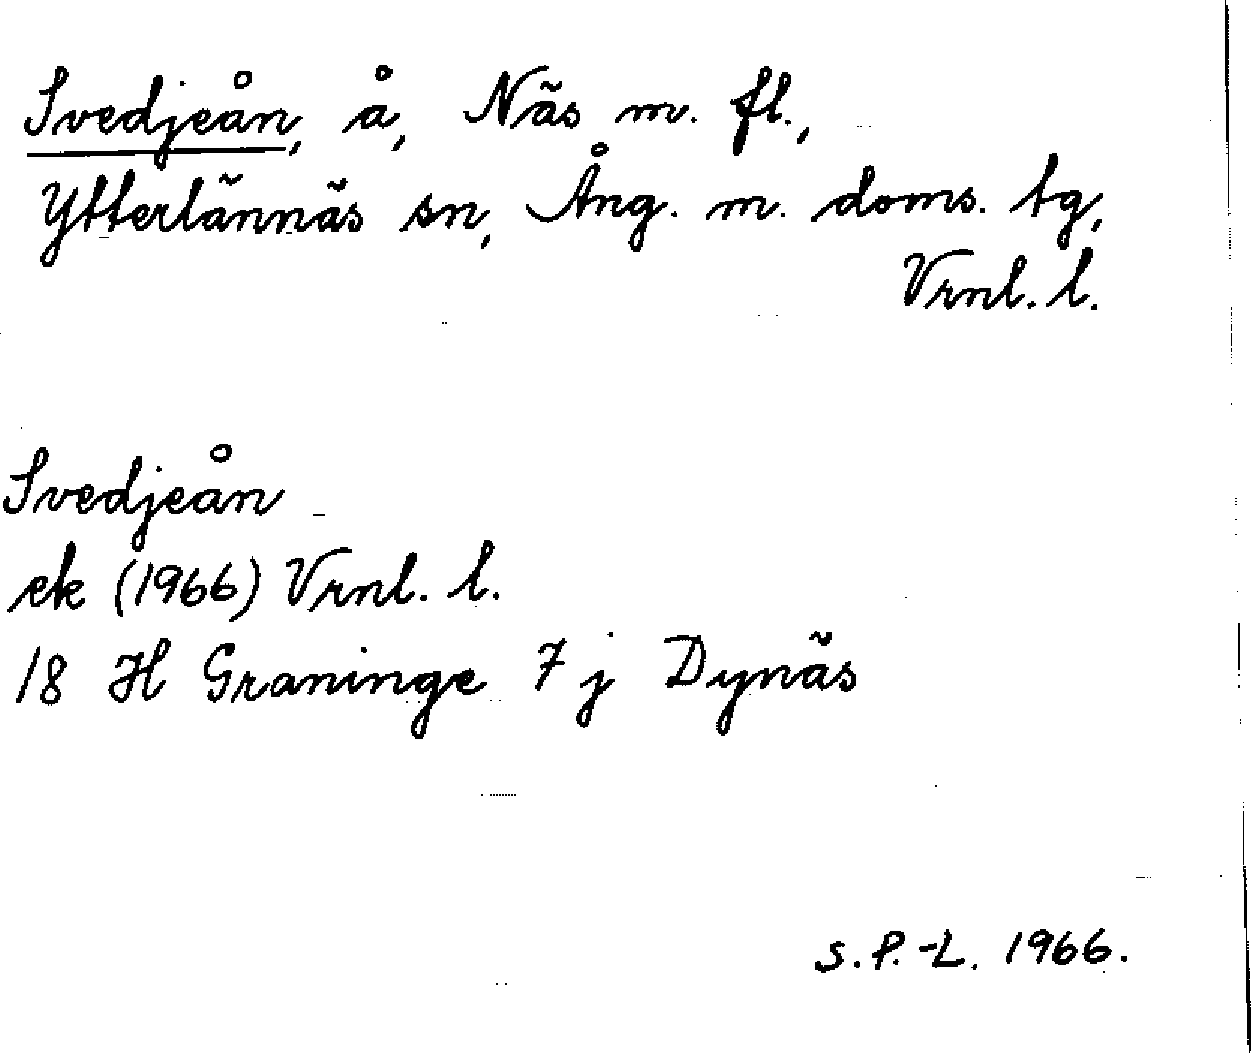 Svedjeån, å, Näs m. fl.,
Ytterlännäs sn, Ång. m. doms. tg,
Vrnl. l.
Svedjeån
ek (1966) Vrnl. l.
18 H Graninge 7 j Dynäs
S. P.-L. 1966.